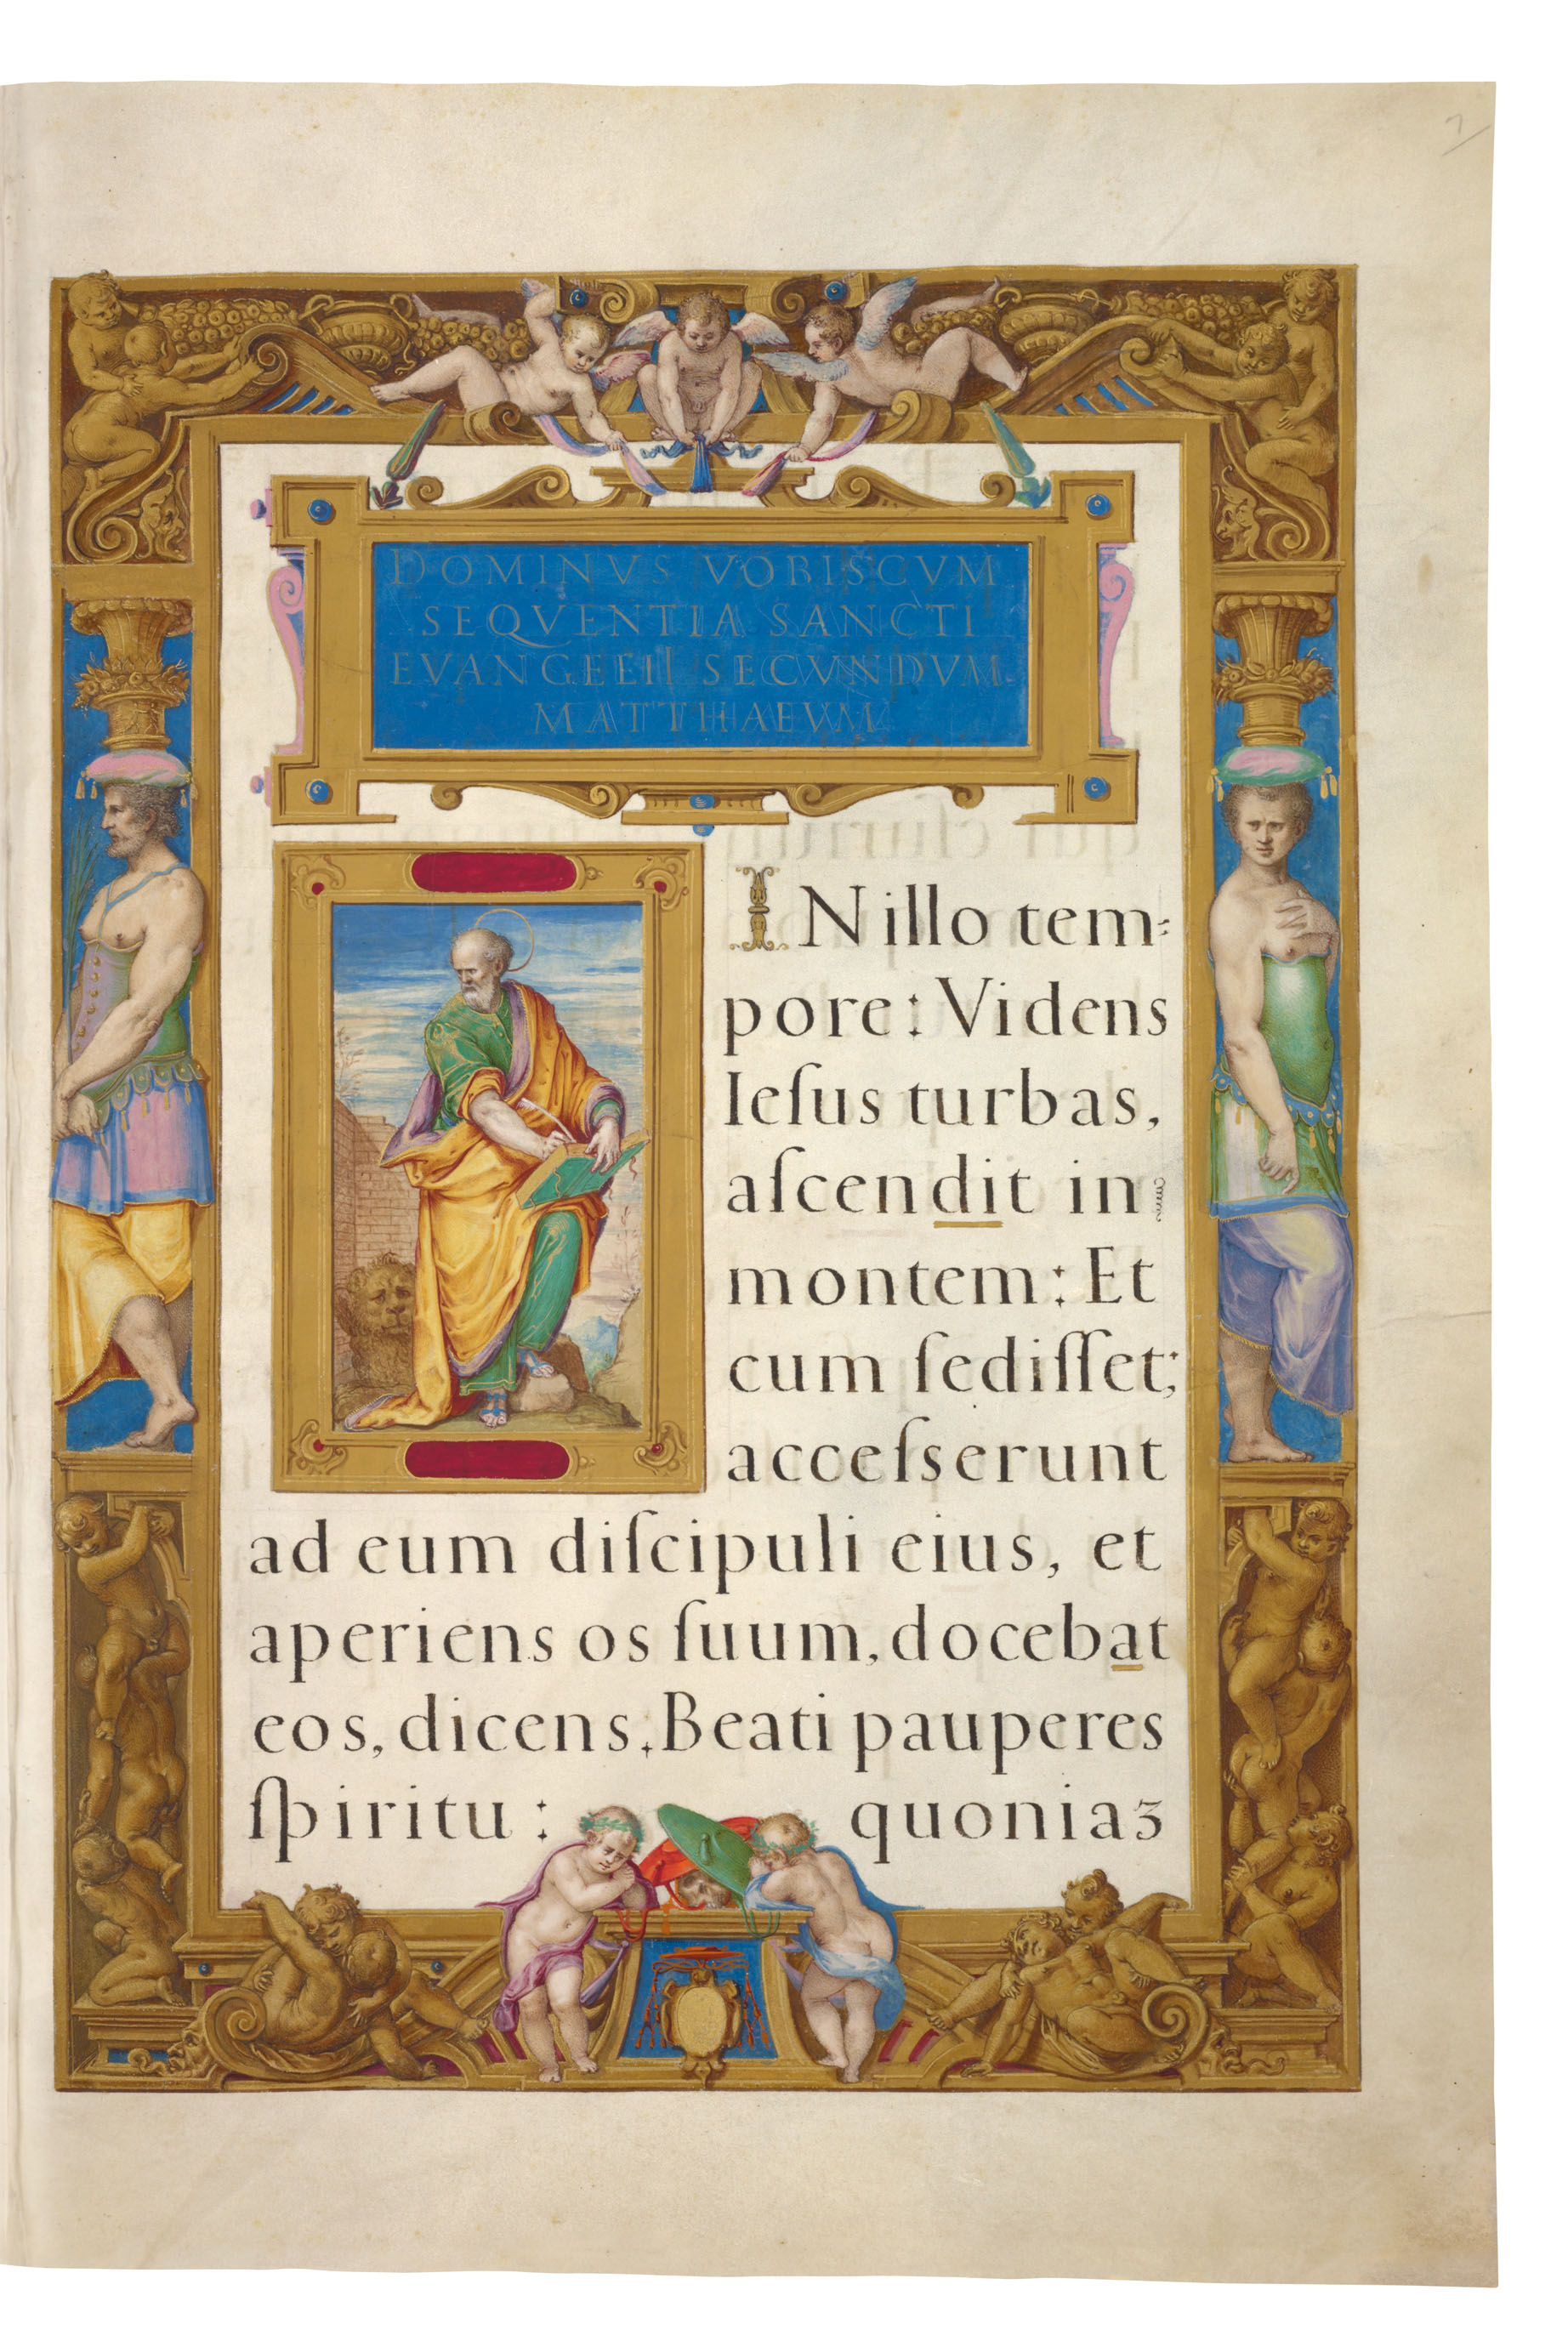 DOMINVS VOBISCVM
SEQVENTIA SANCTI
EVANGELII SECVNDVM
MATTHAEVM.
IN illo tem=
pore: Videns
Ieſus turbas,
aſcendit in
montem: Et
cum ſediſſet;
acceſserunt
ad eum diſcipuli eius, et
aperiens os ſuum, docebat
eos, dicens. Beati pauperes
ſpiritu: quoniaꝫ